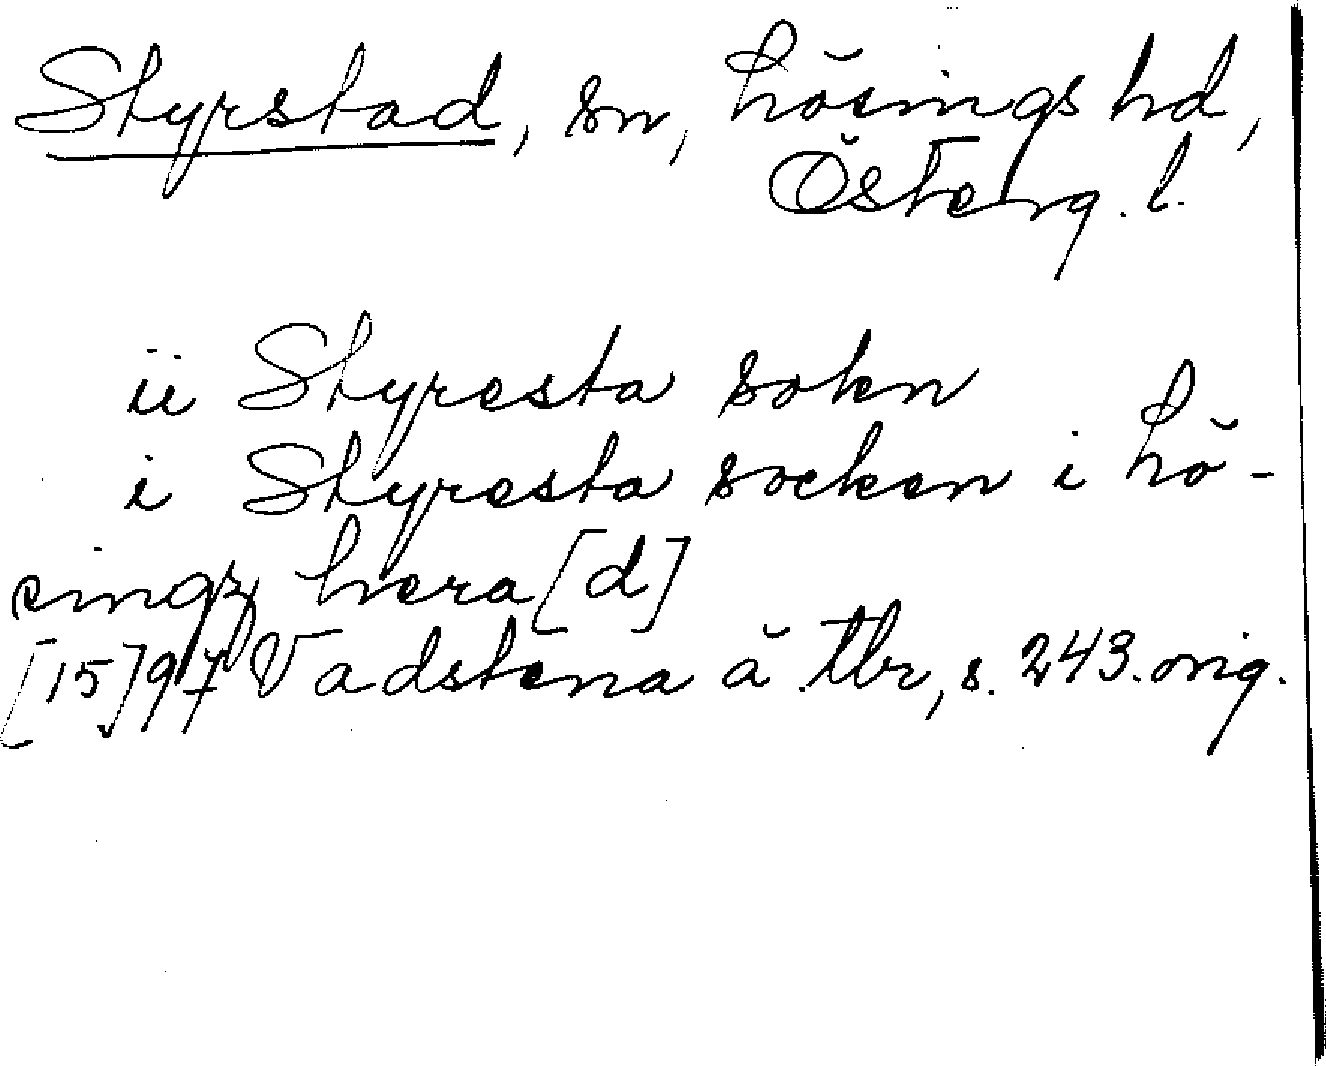 Styrstad, sn, Lösings hd,
Österg. l.
ii Styresta sokn
i Styresta socken i Lö-
singz hera[d]
[15]97 Vadstena ä tbr, s. 243. orig.